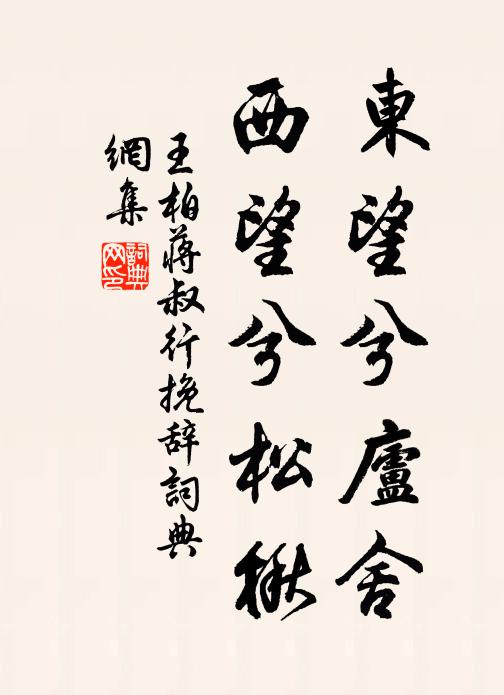 東望兮廬舍
西望兮松楸
王柏蔣叔行挽辞詞典
網集
詞典
网印